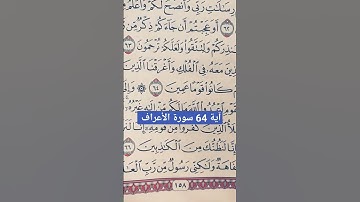 رِسَٰلَٰتِ رَبِّي وَأَنصَحُ لَكُمْ وَأَعْلَمُ
٦٢ أَوَعَجِبْتُمْ أَن جَآءَكُمْ ذِكْرٌ مِّن
وَلِتَتَّقُوا۟ وَلَعَلَّكُمْ تُرْحَمُونَ ٦٣
مَعَهُۥ فِي ٱلْفُلْكِ وَأَغْرَقْنَا ٱلَّذِينَ
كَانُوا۟ قَوْمًا عَمِينَ ٦٤
آية 64 سورة الأعراف
ٱلَّذِينَ كَفَرُوا۟ مِن قَوْمِهِۦٓ
لَنَظُنُّكَ مِنَ ٱلْكَٰذِبِينَ ٦٦
وَلَٰكِنِّي رَسُولٌ مِّن رَّبِّ
١٥٨